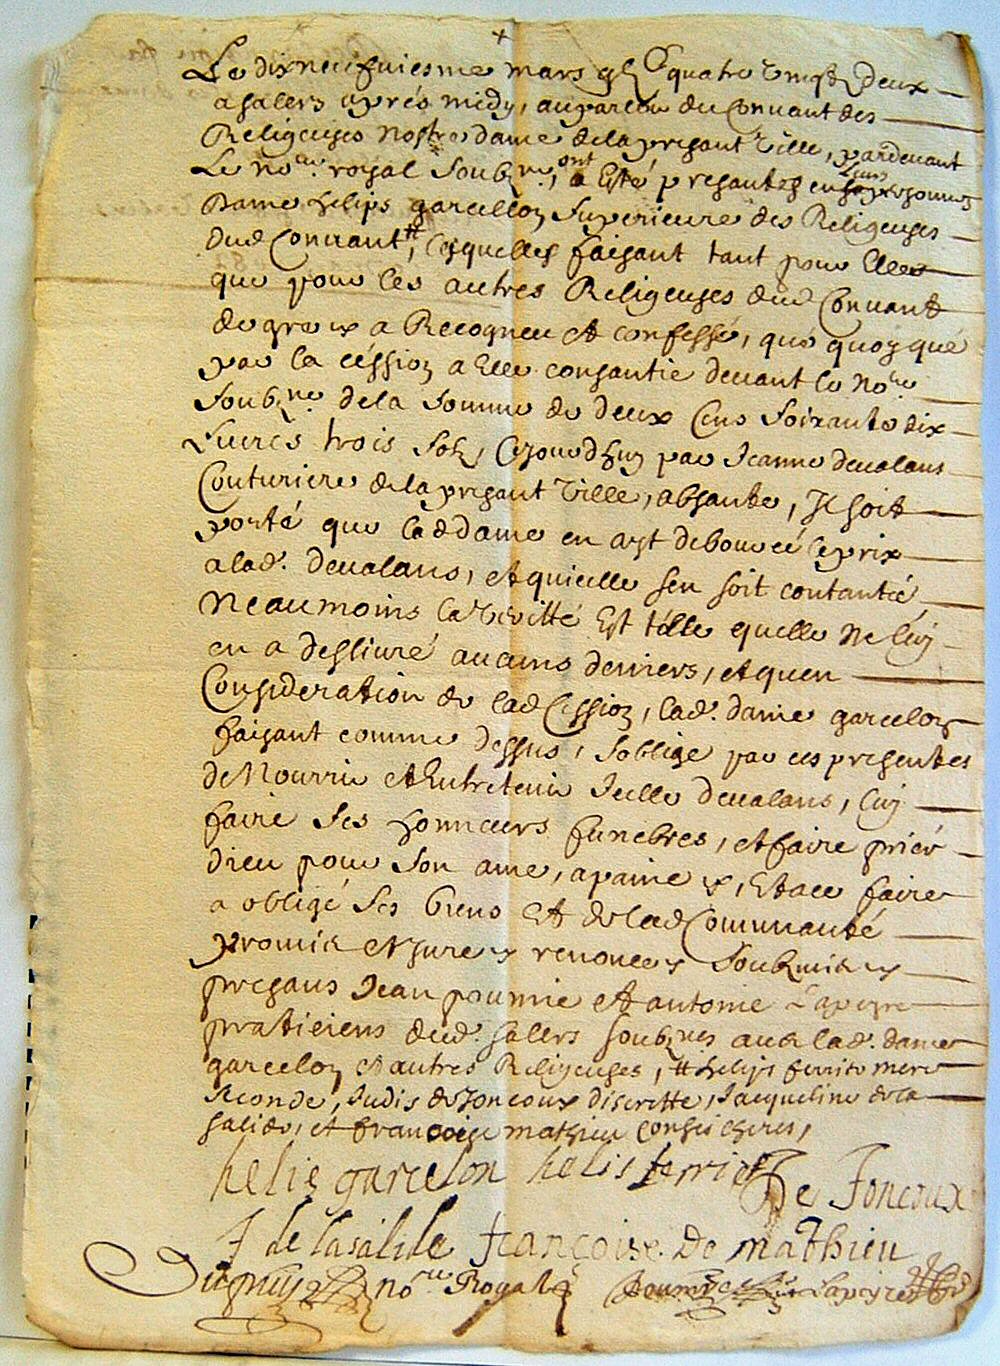 Le dixneufviesme mars gbjC quatre vingtz deux
a salers après midy, au parloir du Convant des
Religeuses nostre dame de la presant ville, pardevant
Le nore. royal Soubzne, ont a Esté presantes en leurs personnes
Dame helips garcellon Superieure des Religeuses
dud Convant #, lesquelles faisant tant pour Elles
que pour les autres Religeuses dud Convant
de gré &a a Recogneu et confessé, que quoyque
par la céssion a Elle consantie devant le nore
Soubzne. de la Somme de deux Cens Soixante dix
Livres trois Solz, Cejourdhuy par Jeanne devalans
Couturiere de la presant ville, absante, Il soit
porté que lad dame en ayt debourcé le prix
a lad. devalans, et quielle sen soit contantée,
Neaumoins la veritté Est télle quelle ne luy
en a desslivré aucuns deniers, et quen
Consideration de lad Cession, lad. dame garcelon
faisant comme dessus, soblige par ces presentes
de Nourrir et Entretenir Icelle devalans, luy
faire ses honneurs funebres, et faire priér
dieu pour son ame, a paine &, Et a ce faire
a obligé ses biens et de lad Communauté
promis et juré & renoncé & Soubzmis &
presans Jean poumie et antoine Lapeyre
pratiéiens dud. salers soubznes avec lad. dame
garcelon et autres Religeuses, # helips ferrite mere
seconde, Judis de Joncoux discrette, Jacqueline de la
salide, et francoise mathieu Conseilheres,
helis garcelon helis ferrier De Joncoux
J de la salide françoise De mathieu
Dupuy nore Royal Poumye Lapeyre